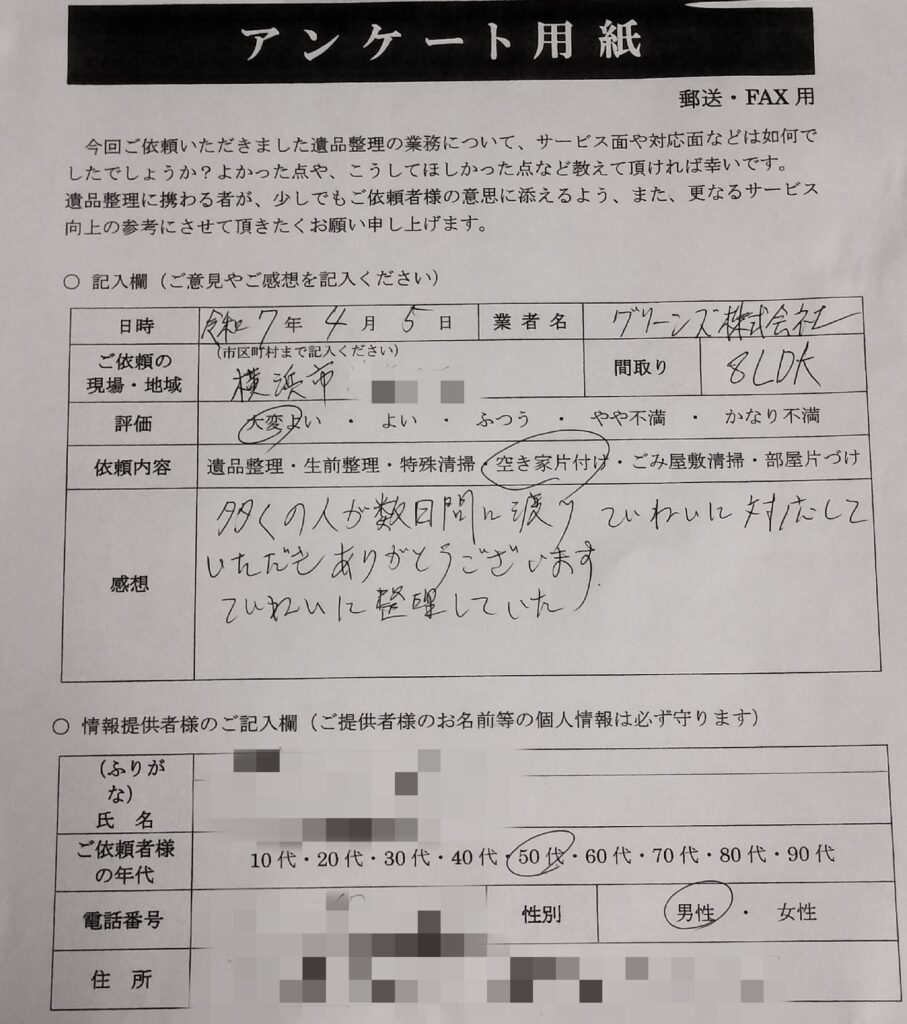 アンケート用紙
郵送・FAX 用
今回ご依頼いただきました遺品整理の業務について、サービス面や対応面などは如何で
したでしょうか？よかった点や、こうしてほしかった点など教えて頂ければ幸いです。
遺品整理に携わる者が、少しでもご依頼者様の意思に添えるよう、また、更なるサービス
向上の参考にさせて頂きたくお願い申し上げます。
○ 記入欄（ご意見やご感想を記入ください）
日時 令和 7 年 4 月 5 日 業者名 グリーンズ株式会社
ご依頼の
現場・地域
（市区町村まで記入ください）
横浜市
間取り 8LDK
評価 大変よい ・ よい ・ ふつう ・ やや不満 ・ かなり不満
依頼内容 遺品整理・生前整理・特殊清掃・空き家片付け・ごみ屋敷清掃・部屋片づけ
感想
多くの人が数日間に渡り ていねいに対応して
いただきありがとうございます.
ていねいに整理していた
○ 情報提供者様のご記入欄（ご提供者様のお名前等の個人情報は必ず守ります）
（ふりが
な）
氏 名
ご依頼者様
の年代
10 代・20 代・30 代・40 代・50 代・60 代・70 代・80 代・90 代
電話番号 性別 男性 ・ 女性
住 所